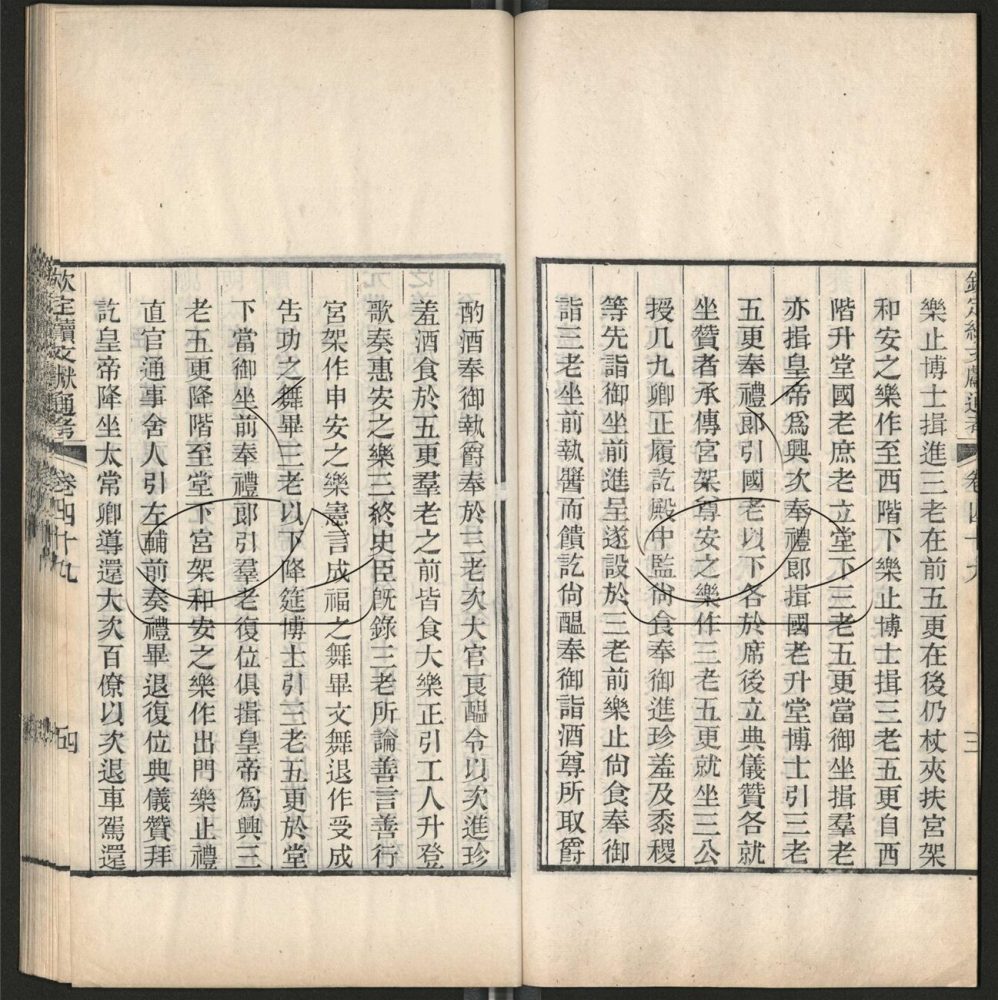 欽定續文獻通考 卷四十九 三
樂止博士揖進三老在前五更在後仍杖夾扶宮架
和安之樂作至西階下樂止博士揖三老五更自西
階升堂國老庶老立堂下三老五更當御坐揖羣老
亦揖皇帝爲興次奉禮郎揖國老升堂博士引三老
五更奉禮郎引國老以下各於席後立典儀贊各就
坐贊者承傳宮架尊安之樂作三老五更就坐三公
授几九卿正履訖殿中監尙食奉御進珍羞及黍稷
等先詣御坐前進呈遂設於三老前樂止尙食奉御
詣三老坐前執醬而饋訖尙醞奉御詣酒尊所取爵
酌酒奉御執爵奉於三老次大官良醞令以次進珍
羞酒食於五更羣老之前皆食大樂正引工人升登
歌奏惠安之樂三終史臣旣錄三老所論善言善行
宮架作申安之樂憲言成福之舞畢文舞退作受成
告功之舞畢三老以下降筵博士引三老五更於堂
下當御坐前奉禮郎引羣老復位俱揖皇帝爲興三
老五更降階至堂下宮架和安之樂作出門樂止禮
直官通事舍人引左輔前奏禮畢退復位典儀贊拜
訖皇帝降坐太常卿導還大次百僚以次退車駕還
欽定續文獻通考 卷四十九 四